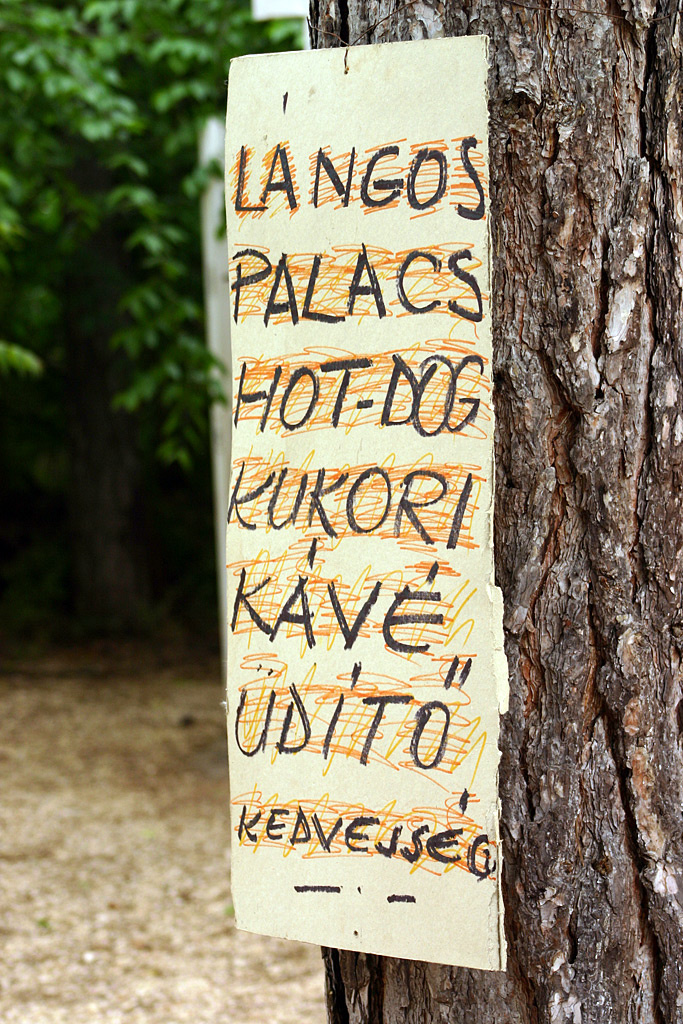 LÁNGOS
PALACS
HOT-DOG
KUKORI
KÁVÉ
ÜDÍTŐ
KEDVESSÉG